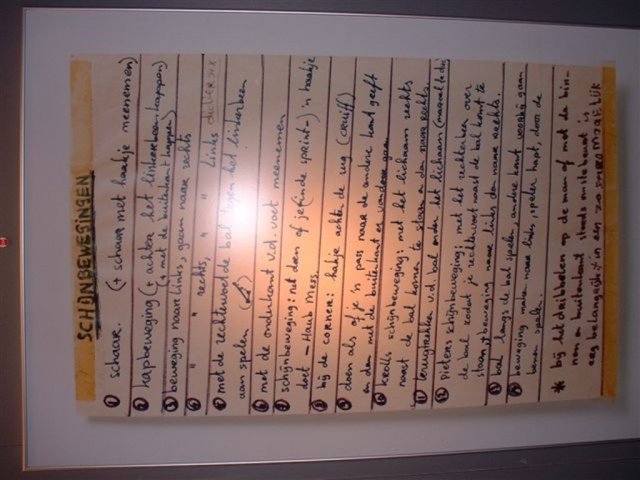 SCHIJNBEWEGINGEN
① schaar. (+ schaar met haakje meenemen)
② kapbeweging (+ achter het linkerbeen kappen)
(+ met de buitenkant kappen)
③ beweging naar links, gaan naar rechts
④ " " rechts, " " links
⑤ met de rechtervoet de bal tegen het linkerbeen
aan spelen
⑥ met de onderkant v.d. voet meenemen
⑦ schijnbeweging: net doen of je
doet -
⑧ bij de corner: haakje achter de rug (cruijff)
⑨ doen als of je 'n pass naar de andere kant geeft
en dan met de buitenkant er vandoor gaan
⑩ schijnbeweging: met het lichaam rechts
naast de bal komen te staan en dan naar rechts.
⑪ terugtrekken v.d. bal onder het lichaam
⑫ schijnbeweging: met het rechterbeen over
de bal zodat je rechtervoet naast de bal komt te
staan, beweging naar links dan naar rechts.
⑬ bal langs de bal spelen, andere kant voorbij gaan
⑭ beweging maken naar links, speler hapt, door de
benen spelen.
* bij het dribbelen op de man af met de bin-
nen en buitenkant steeds
erg belangrijk: